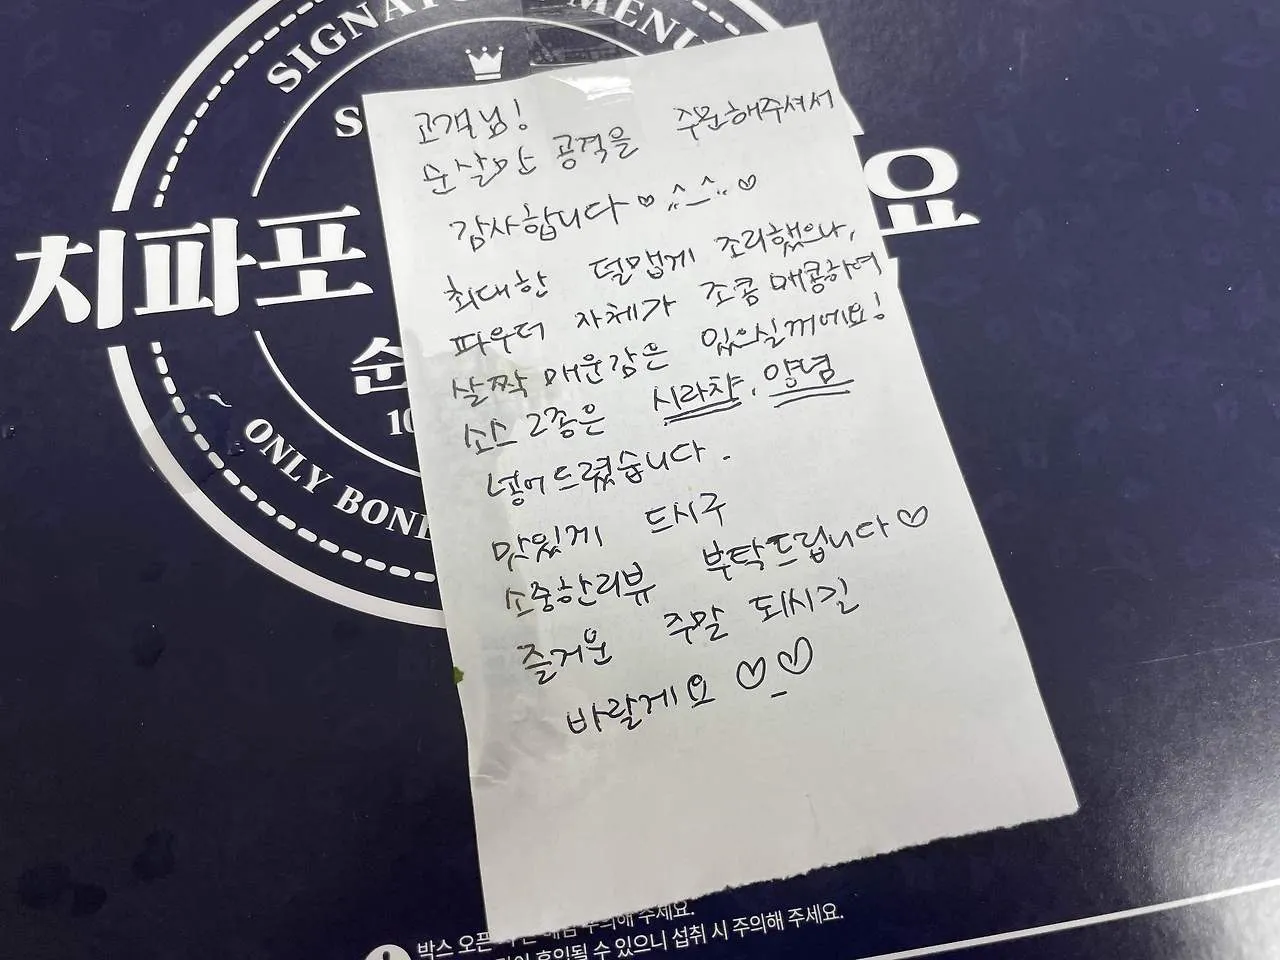 SIGNAT MENU
S
치파포 요
순
10
ONLY BON
고객님!
순살만 공격을 주문해주셔서
감사합니다♡ ^_^ ♡
최대한 덜맵게 조리했으나,
파우더 자체가 조콤매콤하여
살짝 매운감은 있으실꺼에요!
소스 2종은 시라챠, 양념
넣어드렸습니다.
맛있게 드시구
소중한리뷰 부탁드립니다♡
즐거운 주말 되시길
바랄게요 ♡_♡
박스 오픈 주의해 주세요.
혼입될 수 있으니 섭취 시 주의해 주세요.